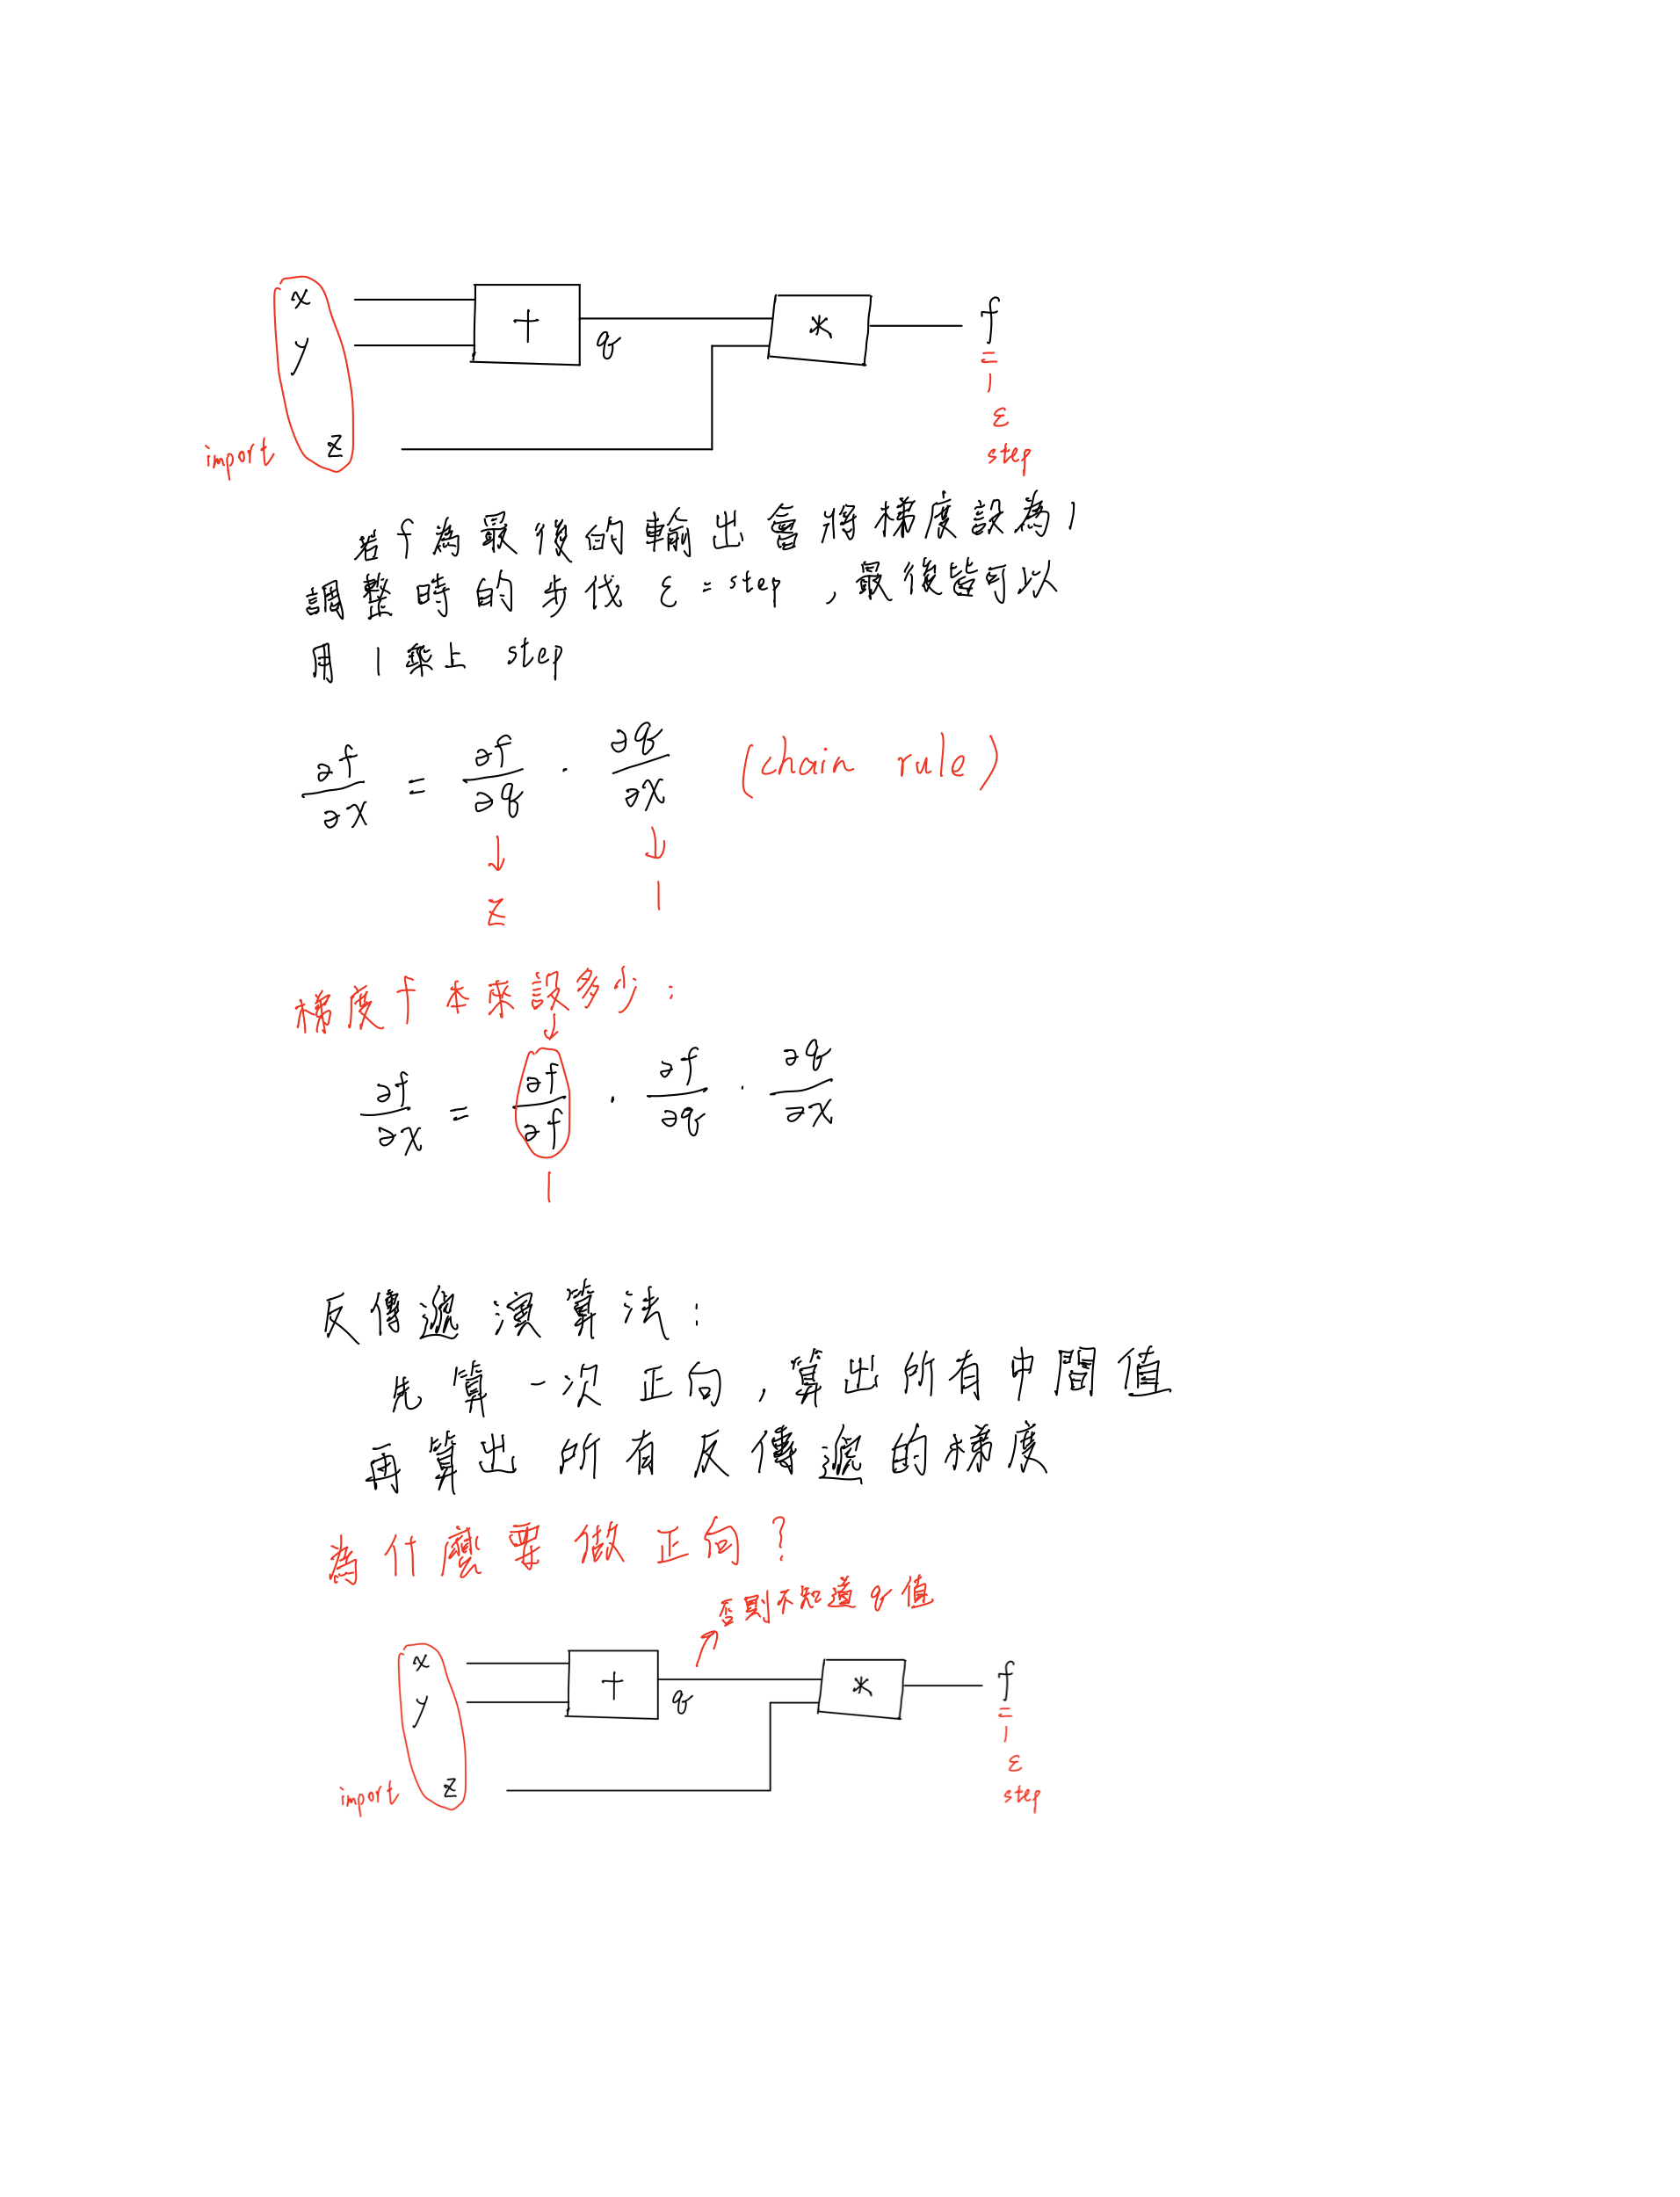 x
y
+
q
*
f
=
1
ε
import
z
step
若 f 為最後的輸出會將梯度設為 1
調整時的步伐 ε = step , 最後皆可以
用 1 乘上 step
∂f/∂x = ∂f/∂q · ∂q/∂x (chain rule)
↓ ↓
z 1
梯度 f 本來設多少:
↓
∂f/∂x = ∂f/∂f · ∂f/∂q · ∂q/∂x
1
反傳遞演算法:
先算一次正向, 算出所有中間值
再算出所有反傳遞的梯度
為什麼要做正向?
否則不知道 q 值
x
y
+
q
*
f
=
1
ε
import
z
step